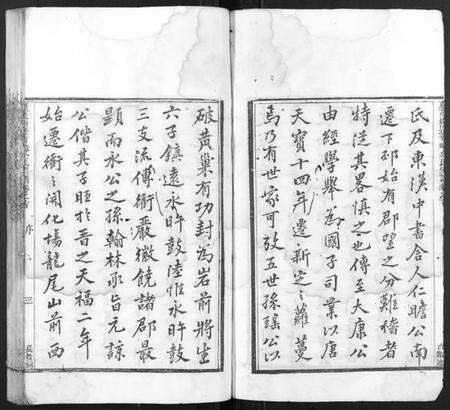 氏及東漢中書舍人仁瞻公南
遷下邳始有郡望之分難禱者
特從其畧慎之也傳至大康公
由經學舉為國子司業以唐
天寶十四年遷新定之蘿蔓
焉乃有世家可攷五世孫瑤公以
破黃巢有功封為岩前將生
六子鎮遠永昨鼓陸惟永昨鼓
三支流傳衢嚴徽饒諸郡最
顯而永公之孫翰林承旨元諒
公偕其子旺於晉之天福二年
始遷衢之開化場龍尾山前西
序
三